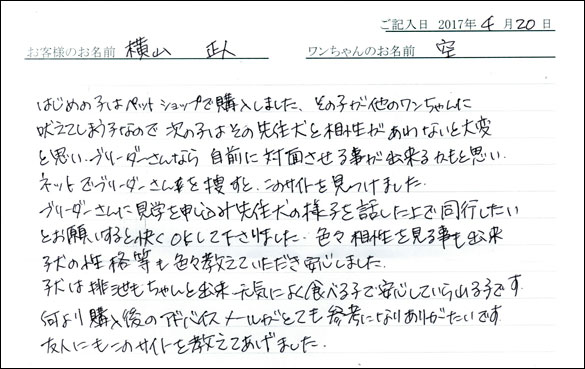 ご記入日 2017年4月20日
お客様のお名前 横山 正人 ワンちゃんのお名前 空
はじめの子はペットショップで購入しました、その子が他のワンちゃんに
吠えてしまう子なので 次の子はその先住犬と相性があわないと大変
と思い、ブリーダーさんなら 自前に対面させる事が出来るかもと思い、
ネットでブリーダーさんを捜すと、このサイトを見つけました。
ブリーダーさんに見学を申込み先住犬の様子を話した上で同行したい
とお願いすると快くOKして下さりました。色々相性を見る事も出来
子犬の性格等も色々教えていただき安心しました。
子犬は排泄もちゃんと出来 元気によく食べる子で安心していられる子です。
何より購入後のアドバイスメールがとても参考になりありがたいです。
友人にもこのサイトを教えてあげました。